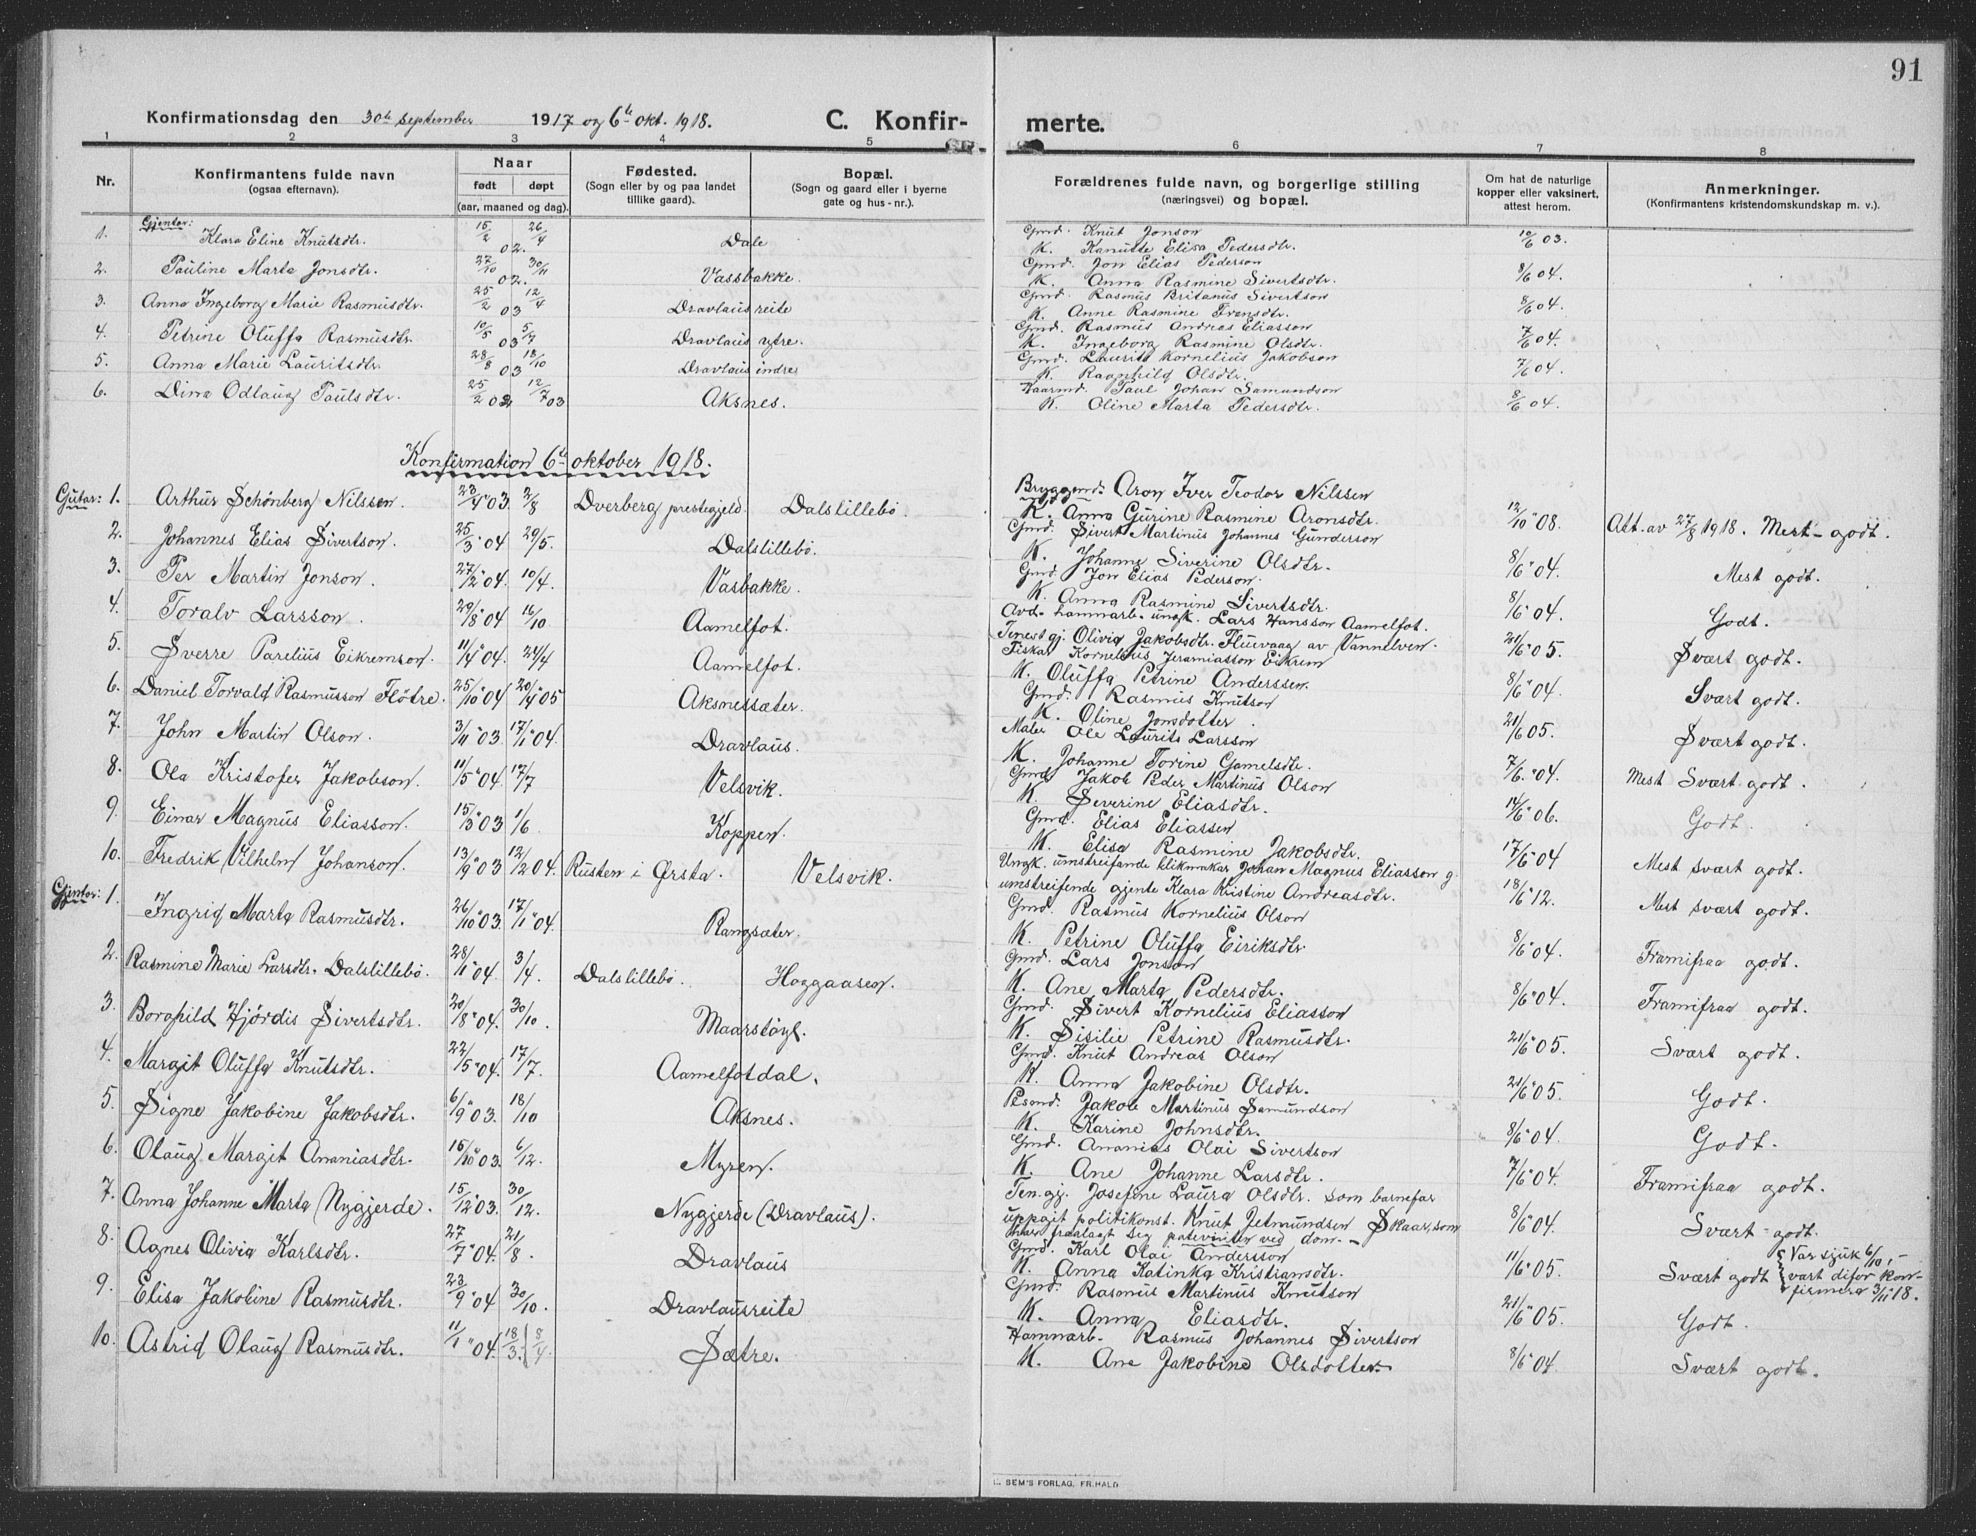 91
Konfirmationsdag den 30te september 1917 og 6te okt. 1918. C. Konfir- merte.
1 2 3 4 5 6 7 8
Nr. Konfirmantens fulde navn (ogsaa efternavn). Naar født døpt (aar, maaned og dag). Fødested. (Sogn eller by og paa landet tillike gaard). Bopæl. (Sogn og gaard eller i byerne gate og hus-nr.). Forældrenes fulde navn, og borgerlige stilling (næringsvei) og bopæl. Om hat de naturlige kopper eller vaksinert, attest herom. Anmerkninger. (Konfirmantens kristendomskundskap m. v.).
Gjentor:
1. Klara Eline Knutsdtr. 15/2 02. 26/4 Dale Gmd. Knut Jonson K. Kanutte Elisa Pedersdtr. 10/6 03.
2. Pauline Marta Jonsdtr. 27/10 02. 30/11 Vassbakke. Gmd. Jon Elias Pederson K. Anna Rasmine Sivertsdtr. 8/6 04.
3. Anna Ingeborg Marie Rasmusdtr. 25/2 03 12/4 Dravlausreite Gmd. Rasmus Britanus Sivertson K. Anne Rasmine Fransdtr. 8/6 04.
4. Petrine Oluffa Rasmusdtr. 10/5 03 5/7 Dravlaus ytre. Gmd. Rasmus Andreas Eliasson K. Ingeborg Rasmine Olsdtr. 7/6 04.
5. Anna Marie Lauritsdtr. 28/8 03 18/10 Dravlaus indre Gmd. Laurits Kornelius Jakobson K. Ragnhild Olsdtr. 7/6 04.
6. Dina Odlaug Paulsdtr. 25/2 03 12/7 03 Aksnes. Kaarmd. Paul Johan Samundson K. Oline Marta Pedersdtr. 8/6 04.
Konfirmation 6te oktober 1918.
Gutar: 1. Arthur Schönberg Nilssen. 23/4 03. 2/8 Dverberg prestegjeld. Dalslillebø. Bryggemd. Aron Iver Teodor Nilssen K. Anna Gurine Rasmine Aronsdtr. 12/10 08. Att. av 27/8 1918. Mest-godt.
2. Johannes Elias Sivertson. 25/3 04 29/5. Dalslillebø. Gmd. Sivert Martinus Johannes Gunderson K. Johanne Siverine Olsdtr. 8/6 04. Mest godt.
3. Per Martin Jonson. 27/2 04. 10/4. Vasbakke. Gmd. Jon Elias Pederson. K. Anna Rasmine Sivertsdtr. 8/6 04. Godt.
4. Toralv Larsson. 29/8 04 16/10. Aamelfot. Avd. hammarb. ungk. Lars Hansson Aamelfot. Tenestgj. Olivia Jakobsdtr. Fluevaag av Vannelven. 21/6 05. Svært godt.
5. Sverre Parelius Eikremson. 11/4 04. 24/4 Aamelfot. Fiskar Kornelius Jeramiasson Eikrem K. Oluffa Petrine Anderssen. 8/6 04. Svært godt.
6. Daniel Torvald Rasmusson Fløtre. 25/10 04 20/4 05 Aksnessæter. Gmd. Rasmus Knutson K. Oline Jonsdotter. 21/6 05. Svært godt.
7. John Martin Olson. 3/11 03. 17/1 04. Dravlaus. Maler Ole Laurits Larsson K. Johanne Torine Gamelsdtr. 7/6 04. Mest Svært godt.
8. Ola Kristofer Jakobson. 11/5 04. 17/7 Velsvik. Gmd. Jakob Peder Martinus Olson K. Severine Eliasdtr. 14/6 06. Godt.
9. Einar Magnus Eliasson. 15/3 03 1/6. Koppen. Gmd. Elias Eliassen K. Elisa Rasmine Jakobsdtr. 17/6 04 Mest svært godt.
10. Fredrik Vilhelm Johanson. 13/9 03 12/2 04. Rusten i Ørsta. Velsvik. Ungk. umstreifande blikmakar Johan Magnus Eliasson g. umstreifende gjente Klara Kristine Andreasdtr. 18/6 12. Mest svært godt.
Gjentor: 1. Ingrid Marta Rasmusdtr. 26/10 03. 17/1 04. Rangsæter. Gmd. Rasmus Kornelius Olson K. Petrine Oluffa Eiriksdtr. 8/6 04. Framifraa godt.
2. Rasmine Marie Larsdtr. Dalslillebø. 28/1 04. 3/4. Dalslillebø. Hoggaasen. Gmd. Lars Jonson K. Ane Marta Pedersdtr. 8/6 04. Framifraa godt.
3. Borghild Hjørdis Sivertsdtr. 20/8 04. 30/10. Maarstøyl. Gmd. Sivert Kornelius Eliasson K. Sisilie Petrine Rasmusdtr. 21/6 05. Svært godt.
4. Margit Oluffa Knutsdtr. 22/5 04. 17/7. Aamelfotdal. Gmd. Knut Andreas Olson K. Anna Jakobine Olsdtr. 21/6 05. Godt.
5. Signe Jakobine Jakobsdtr. 6/9 03. 18/10 Aksnes. Plsmd. Jakob Martinus Samundson K. Karine Johnsdtr. 8/6 04. Godt.
6. Olaug Margit Ananiasdtr. 15/10 03. 6/12. Myren. Gmd. Ananias Olai Sivertson K. Ane Johanne Larsdtr. 7/6 04. Framifraa godt.
7. Anna Johanne Marta Nygjerde. 15/12 03. 30/12. Nygjerde (Dravlaus). Ten.gj. Josefine Laura Olsdtr. som barnefar uppgit politikonst. Knut Jetmundsen Skaar, som hev fraalagt seg paterniten ved dom. 8/6 04. Svært-godt.
8. Agnes Olivia Karlsdtr. 27/7 04. 21/8. Dravlaus Gmd. Karl Olai Andersson K. Anna Katinka Kristiansdtr. 11/6 05. Svært godt { Var sjuk 6/10, vart difor konfirmera 3/11 18.
9. Elisa Jakobine Rasmusdtr. 23/9 04 30/10. Dravlausreite Gmd. Rasmus Martinus Knutson K. Anna Eliasdtr. 21/6 05. Godt.
10. Astrid Olaug Rasmusdtr. 11/1 04. 18/3. { 8/4 Sætre. Hammarb. Rasmus Johannes Sivertson K. Ane Jakobine Olsdotter. 8/6 04. Svært godt.
SEM'S FORLAG, FR.HALD